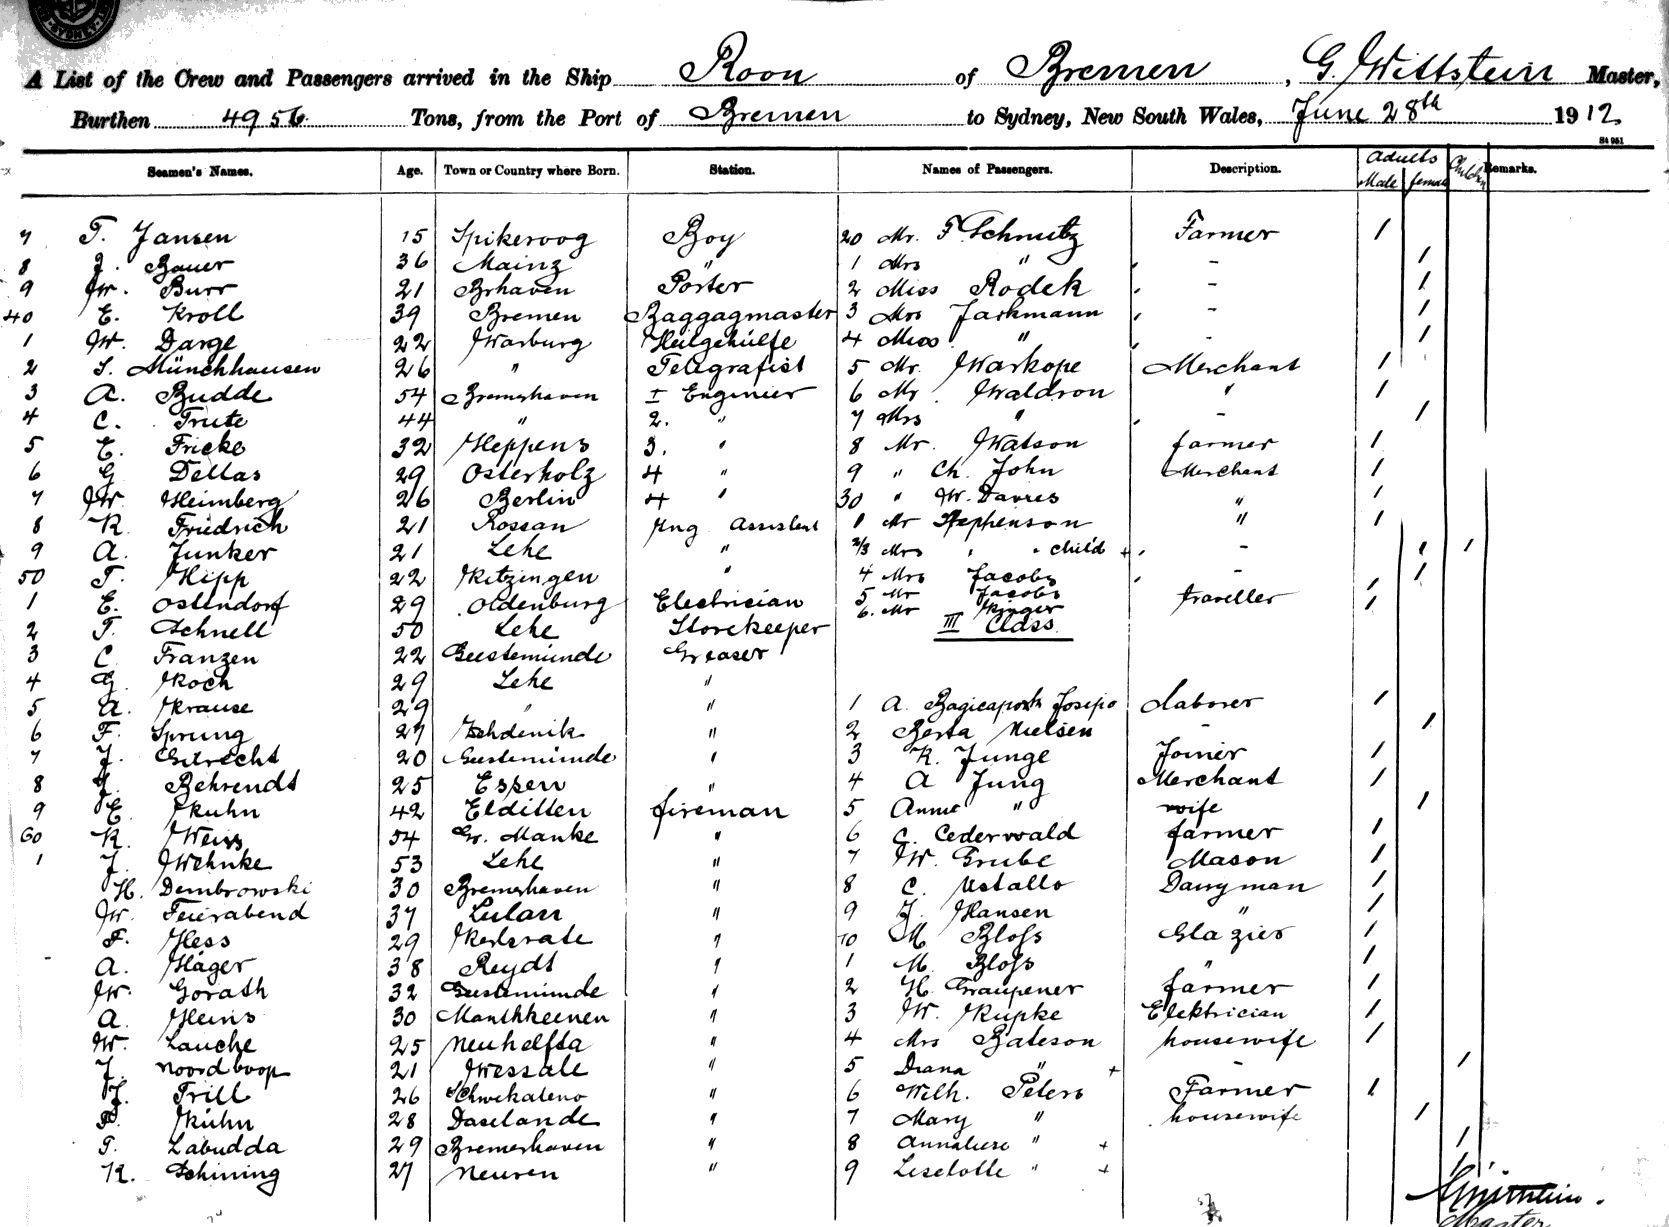 SYDNEY
A List of the Crew and Passengers arrived in the Ship Roon of Bremen, G. Wittstein Master,
Burthen 4956 Tons, from the Port of Bremen to Sydney, New South Wales, June 28th 1912
St 951
Seamen's Names. Age. Town or Country where Born. Station. Names of Passengers. Description. Adults Male female Children Remarks.
7 T. Jansen 15 Spikeroog Boy 20 Mr. F. Schmitz Farmer 1
8 J. Bauer 36 Mainz " 1 Mrs " - 1
9 W. Burr 21 Brhaven Porter 2 Miss Rodek - 1
40 E. Kroll 39 Bremen Baggagmaster 3 Mrs Jarkmann - 1
1 W. Darge 22 Warburg Heilgehülfe 4 Miss " - 1
2 S. Münchhausen 26 " Telegrafist 5 Mr. Warkope Merchant 1
3 A. Budde 54 Bremerhaven I Enginier 6 Mr Waldron " 1
4 C. Trute 44 " 2. " 7 Mrs " - 1
5 E. Fricke 32 Heppens 3. " 8 Mr. Watson farmer 1
6 G Dellas 29 Osterholz 4 " 9 " Ch. John Merchant 1
7 W. Heimberg 26 Berlin 4 " 30 " W. Davies " 1
8 K. Friedrich 21 Rossan Ing Assistent 1 Mr Stephenson " 1
9 A. Junker 21 Lehe " 2/3 Mrs " " child + - 1 1
50 T. Hipp 22 Kitzingen " 4 Mrs Jacobs - 1
1 E. Ostendorf 29 Oldenburg Electrician 5 Mr Jacobs traveller 1
6. Mr Kruger 1
2 T. Schnell 50 Lehe Storekeeper III Class
3 C. Franzen 22 Geestemünde Greaser
4 G. Koch 29 Lehe "
5 A. Krause 29 " " 1 A. Josipo Laborer 1
6 F. Sprung 27 Zehdenik " 2 Berta Nielsen - 1
7 J. 20 Geestemünde " 3 K. Junge Joiner 1
8 J. Behrendt 25 Essen " 4 A Jung Merchant 1
9 E. Kuhn 42 Elditten fireman 5 Annie " wife 1
60 K. Weiss 54 Gr. Manke " 6 C. Cederwald farmer 1
1 J. Wehnke 53 Lehe " 7 W. Grube Mason 1
H. Dembrowski 30 Bremerhaven " 8 C. Ustallo Dairyman 1
W. Feierabend 37 " 9 J. Hansen " 1
F. Hess 29 " 10 M Bloss Glazier 1
A. Häger 38 Reydt " 1 M. Bloss " 1
W. Gorath 32 Geestemünde " 2 H. Graupener farmer 1
A. Heins 30 Manthkeenen " 3 W. Kupke Elektrician 1
W. Lauche 25 Neuhelfta " 4 Mrs Bateson housewife 1
J. Noordboop 21 Wessale " 5 Diana " + - 1
J. Trill 26 " 6 Wilh. Peters Farmer 1
P. Kuhn 28 Daselande " 7 Mary " housewife 1
T. Labudda 29 Bremerhaven " 8 Annaliese " + 1
K. Schining 27 Neuren " 9 Liselotte " + 1
Master